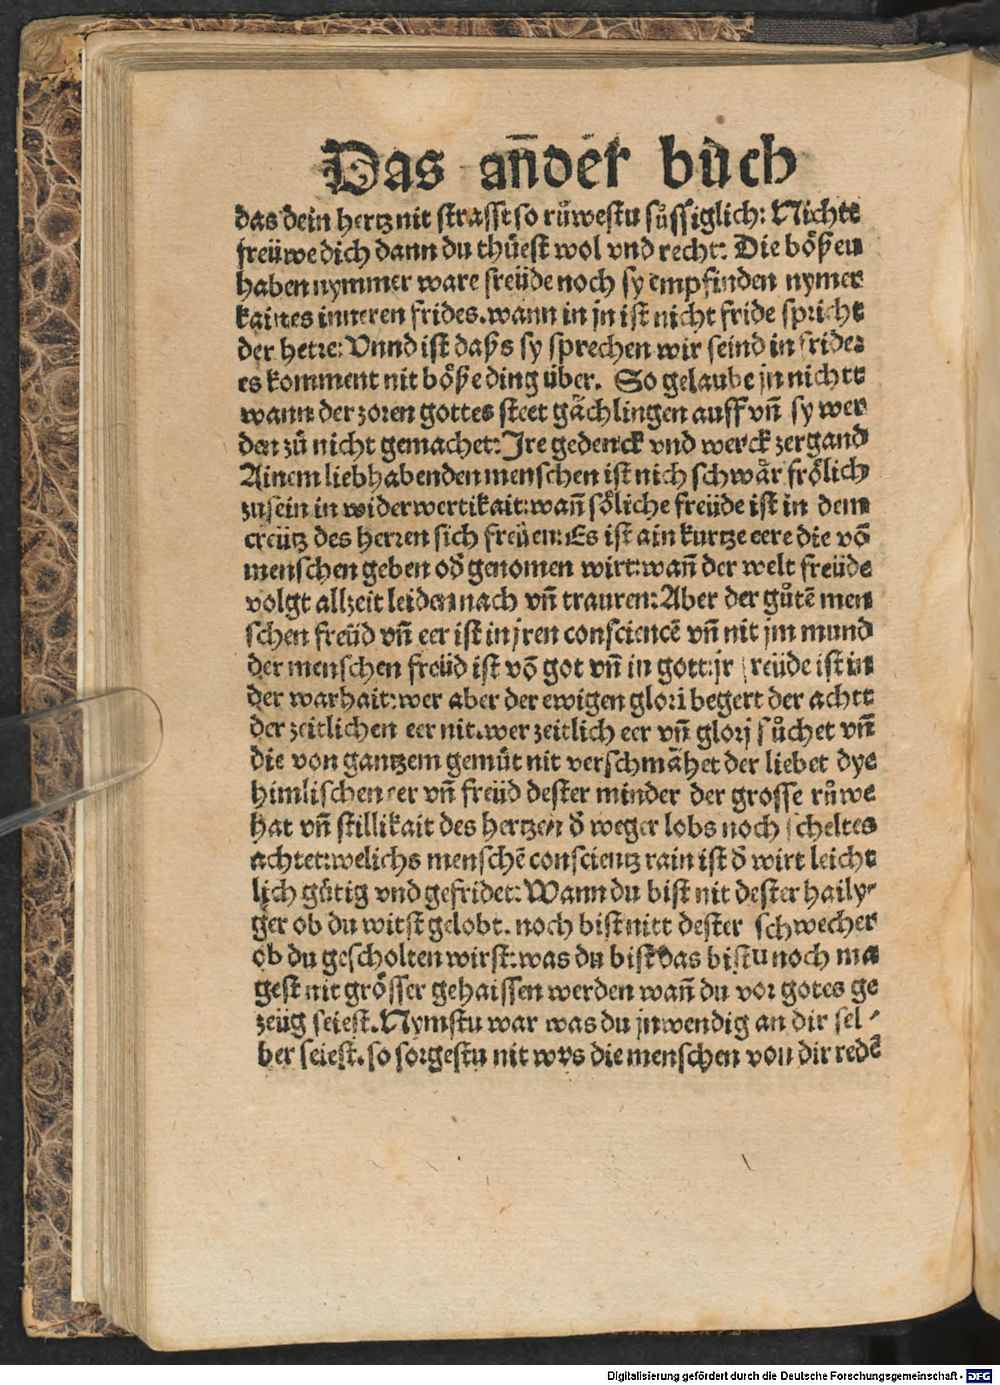 Das an̄der bůch
das dein hertz nit strafft so růwestu sůssiglich: Nichte
freüwe dich dann du thüest wol vnd recht: Die bößen
haben nymmer ware freüde noch sy empfinden nymer
kaines inneren frides. wann in jn ist nicht fride spricht
der herre: Vnnd ist daß sy sprechen wir seind in fride:
es komment nit böße ding über. So gelaube jn nichtt
wann der zoren gottes steet gächlingen auff vn̄ sy wer
den zů nicht gemachet: Ire gedenck vnd werck zergand
Ainem liebhabenden menschen ist nich schwär frölich
zusein in widerwertikait: wan̄ söliche freüde ist in dem
creütz des herren sich freüen: Es ist ain kurtze eere die vō
menschen geben od̄ genomen wirt: wan̄ der welt freüde
volgt allzeit leiden nach vn̄ trauren: Aber der gůtē men
schen freüd vn̄ eer ist in jren consciencē vn̄ nit jm mund
der menschen freüd ist vō got vn̄ in gott: jr freüde ist in
der warhait: wer aber der ewigen glori begert der achtt
der zeitlichen eer nit. wer zeitlich eer vn̄ glorj sůchet vn̄
die von gantzem gemüt nit verschmähet der liebet dye
himlischen eer vn̄ freüd dester minder der grosse růwe
hat vn̄ stillikait des hertzen d̄ weger lobs noch scheltes
achtet: welichs menschē conscientz rain ist d̄ wirt leicht
lich gütig vnd gefridet: Wann du bist nit dester haily⸗
ger ob du witst gelobt. noch bist nitt dester schwecher
ob du gescholten wirst: was du bist das bistu noch ma
gest nit grösser gehaissen werden wan̄ du vor gotes ge
zeüg seiest. Nymstu war was du jnwendig an dir sel⸗
ber seiest. so sorgestu nit wvs die menschen von dir redē
Digitalisierung gefördert durch die Deutsche Forschungsgemeinschaft - DFG